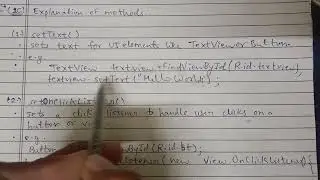 (2c) Explanation of methods.
(1) setText()
- sets text for UI elements like TextView or Button.
- e.g.
TextView textview = findViewById(R.id.textview);
textview.setText("Hello World");
(2) setOnClickListener()
- sets a click listener to handle user clicks on a button or
- e.g.
Button findViewById(R.id.bt);
(new View.OnClickListener() {